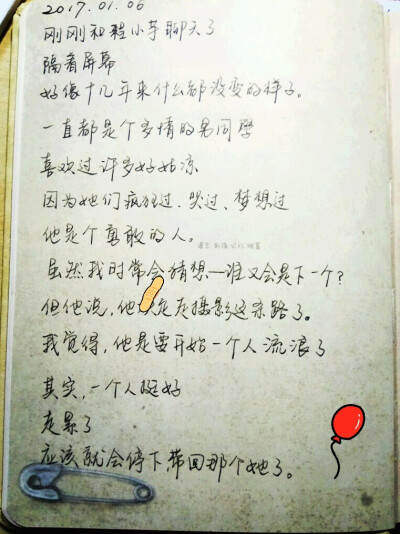 2017.01.06
刚刚和程小芋聊天了
隔着屏幕
好像十几年来什么都没变的样子。
一直都是个多情的男同学
喜欢过许多好姑凉
因为她们疯狂过、哭过、梦想过
他是个勇敢的人。
虽然我时常会猜想一谁又会是下一个?
但他说,他走在摄影这条路了。
我觉得,他是要开始一个人流浪了
其实,一个人挺好
走累了
应该就会停下带回那个她了。